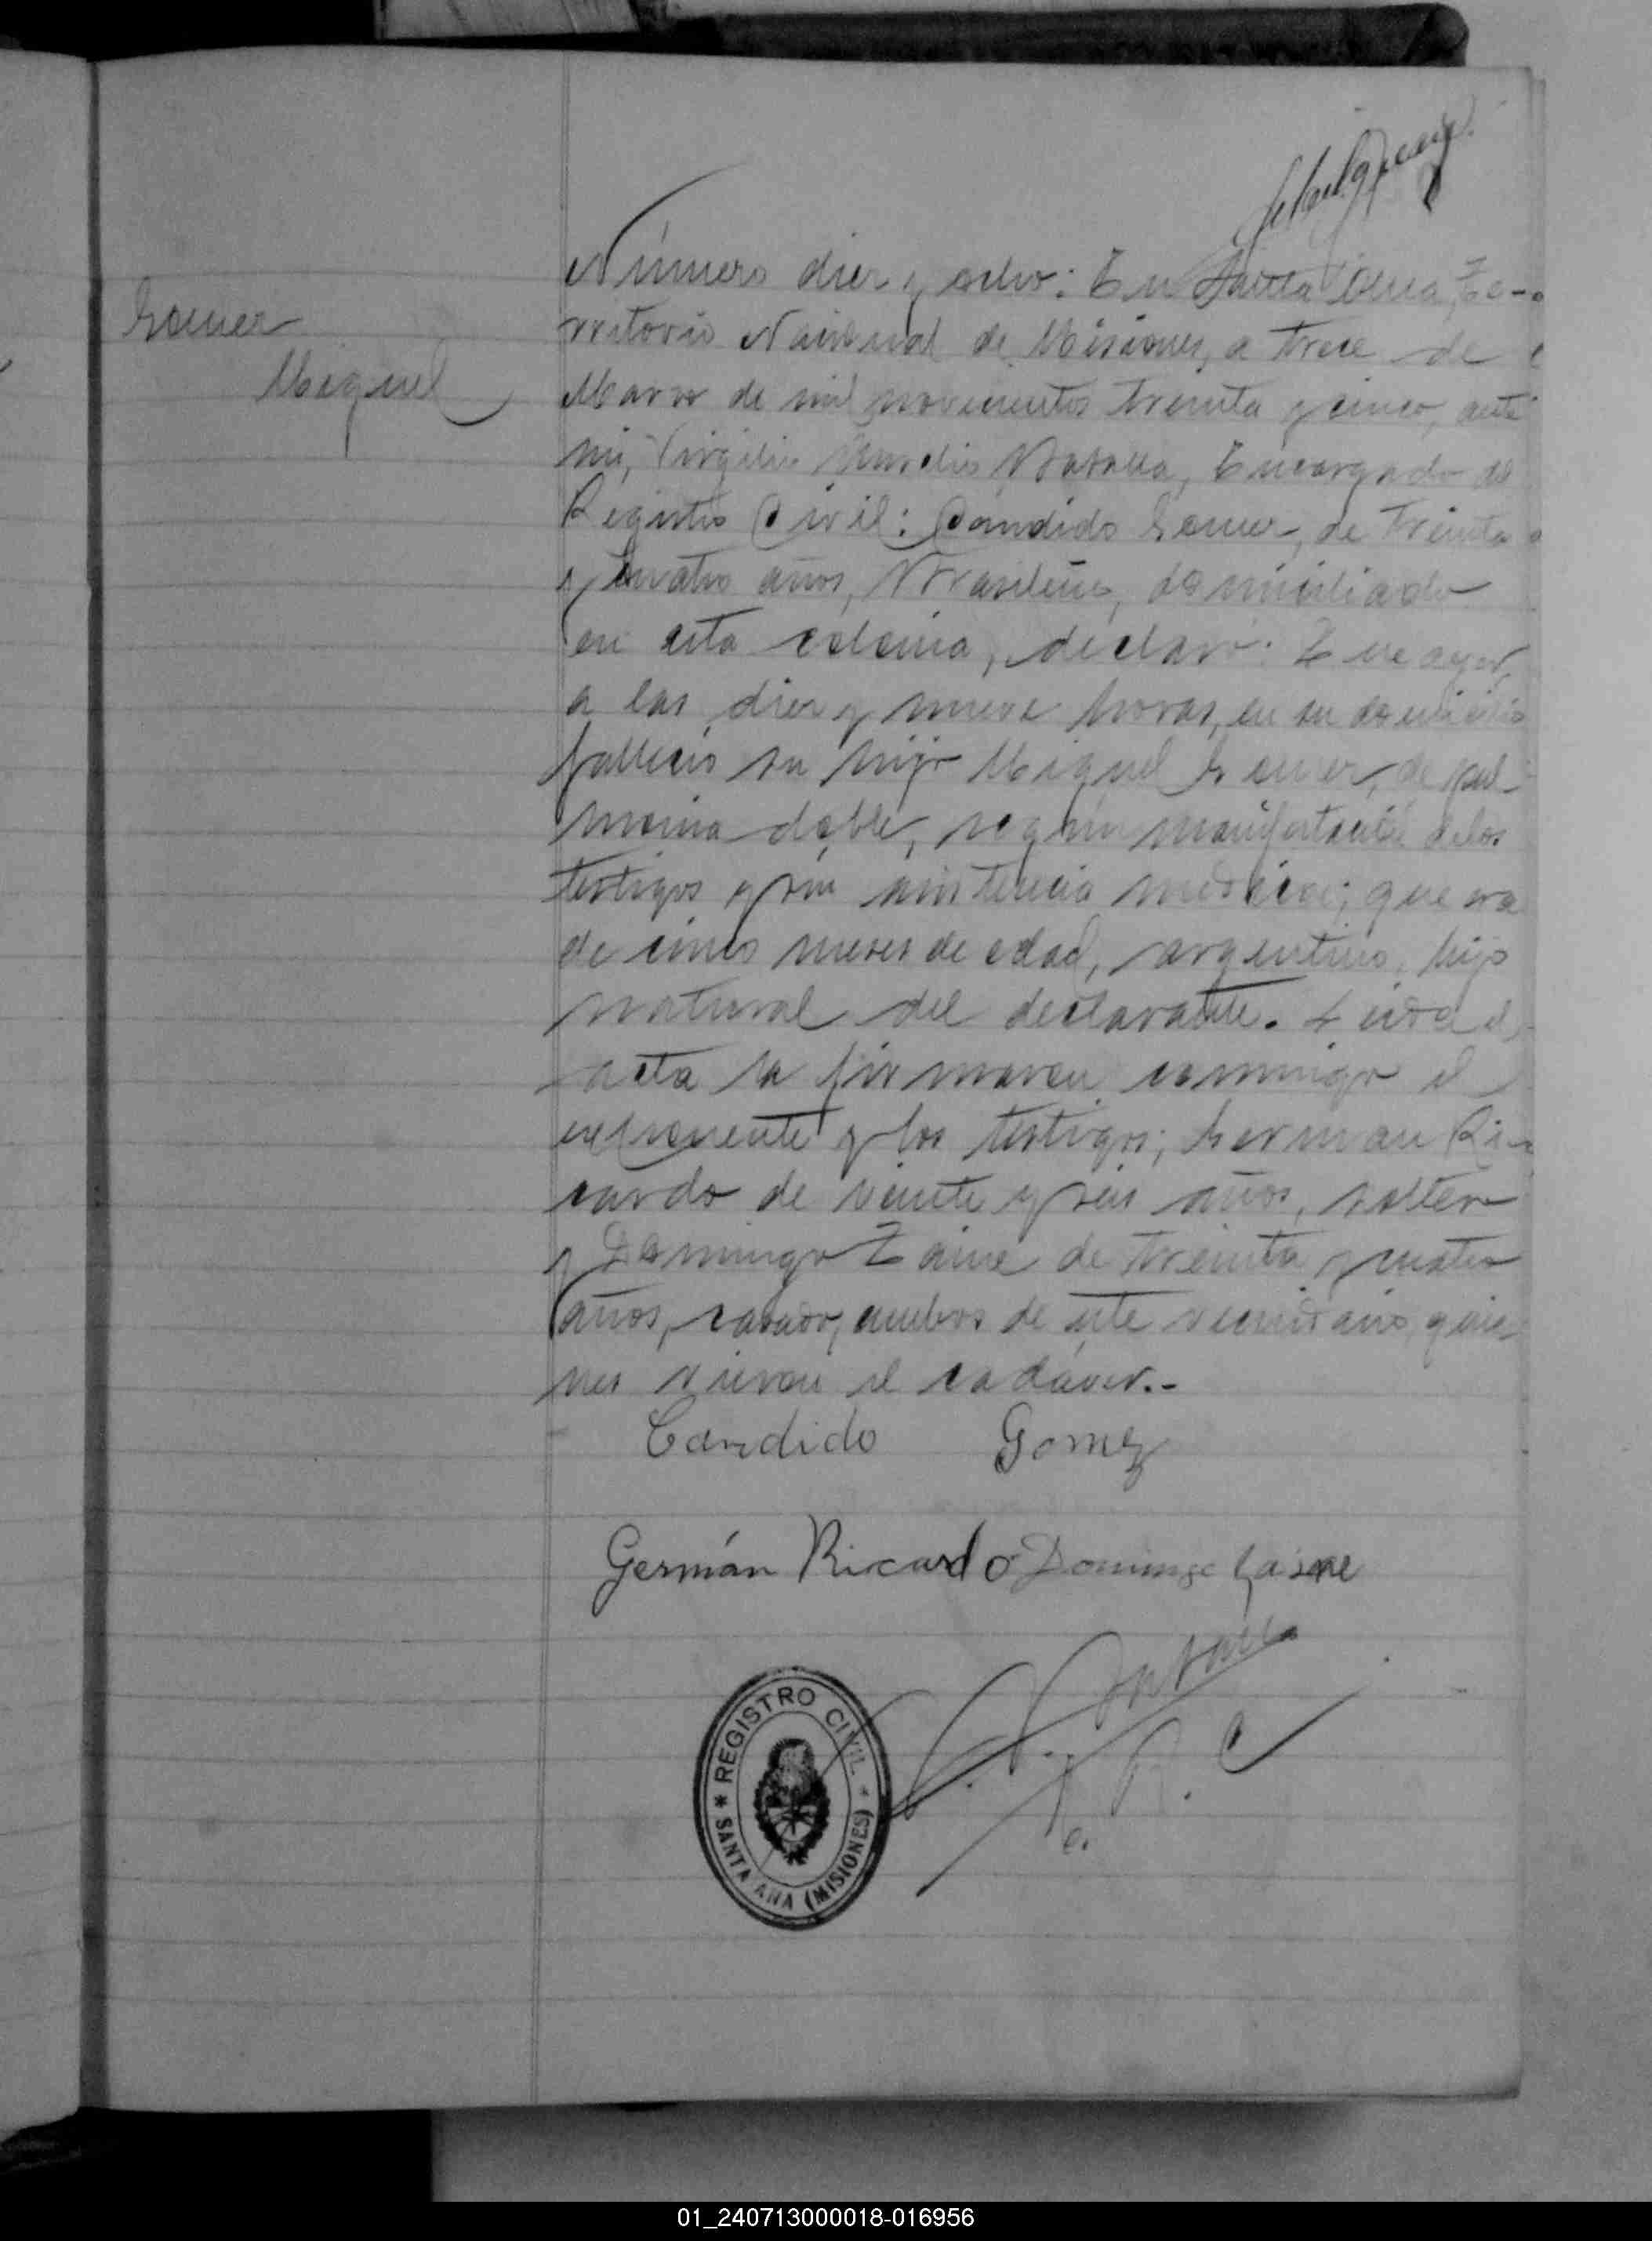 Gomez
Miguel
Número diez y ocho: En Santa Ana, Te-
rritorio Nacional de Misiones, a trece de
Marzo de mil novecientos treinta y cinco, ante
mi, Virgilio Aurelio Batalla, Encargado del
Registro Civil: Cándido Gomez, de treinta
y cuatro años, Brasileño, domiciliado
en esta colonia, declaró: Que ayer,
a las diez y nueve horas, en su domicilio
falleció su hijo Miguel Gomez, de pul-
monia doble, según manifestación de los
testigos y sin asistencia medica; que era
de cinco meses de edad, argentino, hijo
natural del declarante. Leida el
acta la firmaron conmigo el
exponente y los testigos; German Ri-
cardo de veinte y seis años, soltero
y Domingo Zaine de treinta y cuatro
años, casado, ambos de este vecindario, quie-
nes vieron el cadáver.-
Candido Gomez
Germán Ricardo Domingo Zaine
REGISTRO CIVIL
* SANTA ANA (MISIONES) *
E. R. C
01_240713000018-016956